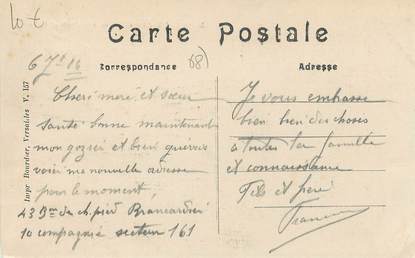 lot
Carte Postale
Correspondance
68)
Adresse
6 7bre 16
Chere mere et sœur
Santé bonne maintenant
mon gozier et bien guerris
voici me nouvelle adresse
pour le moment,
43 Bon de ch. pied Brancardier
10 compagnie secteur 161
Je vous embrasse
bien bien des choses
a toutes la famille
et connaissance
Fils et frere
Impr Bourdier, Versailles V. 157